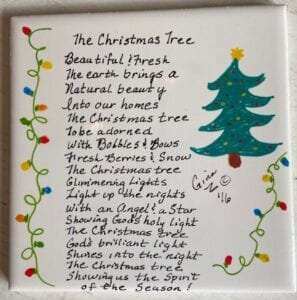 The Christmas Tree
Beautiful! Fresh
The earth brings a
Natural beauty
Into our homes
The Christmas tree
To be adorned
With Bobbles & Bows
Fresh Berries & Snow
The Christmas tree
Glimmering Lights
Light up the nights
With an Angel! a Star
Showing God's holy light
The Christmas tree
God's brilliant light
Shines into the night
The Christmas tree
Showing us the Spirit
of the Season!
Gina
©
'16